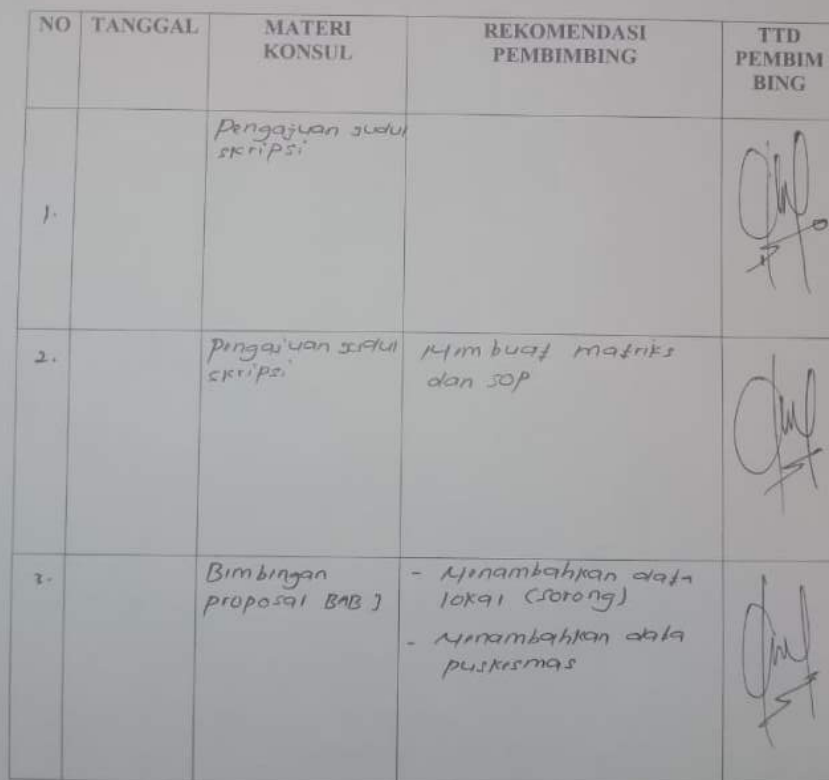 NO TANGGAL MATERI KONSUL REKOMENDASI PEMBIMBING TTD PEMBIM BING
1.
Pengajuan judul
skripsi
2.
Pengajuan judul
skripsi
Membuat matriks
dan SOP
3.
Bimbingan
proposal BAB I
- Menambahkan data
lokal (Sorong)
- Menambahkan data
puskesmas